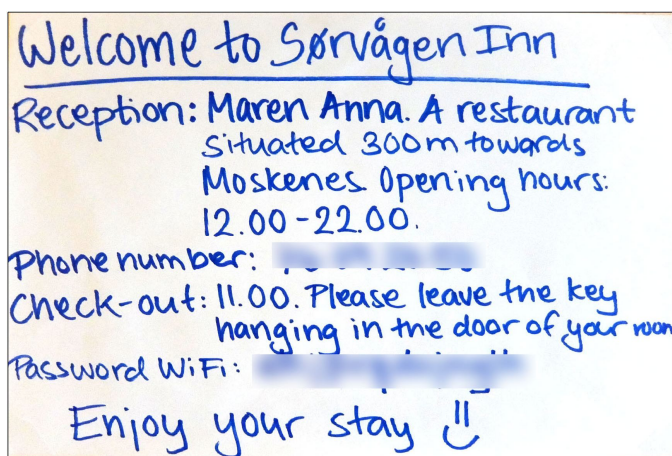 Welcome to Sørvågen Inn
Reception: Maren Anna. A restaurant
situated 300m towards
Moskenes. Opening hours:
12.00-22.00.
Phone number:
Check-out: 11.00. Please leave the key
hanging in the door of your room
Password WiFi:
Enjoy your stay